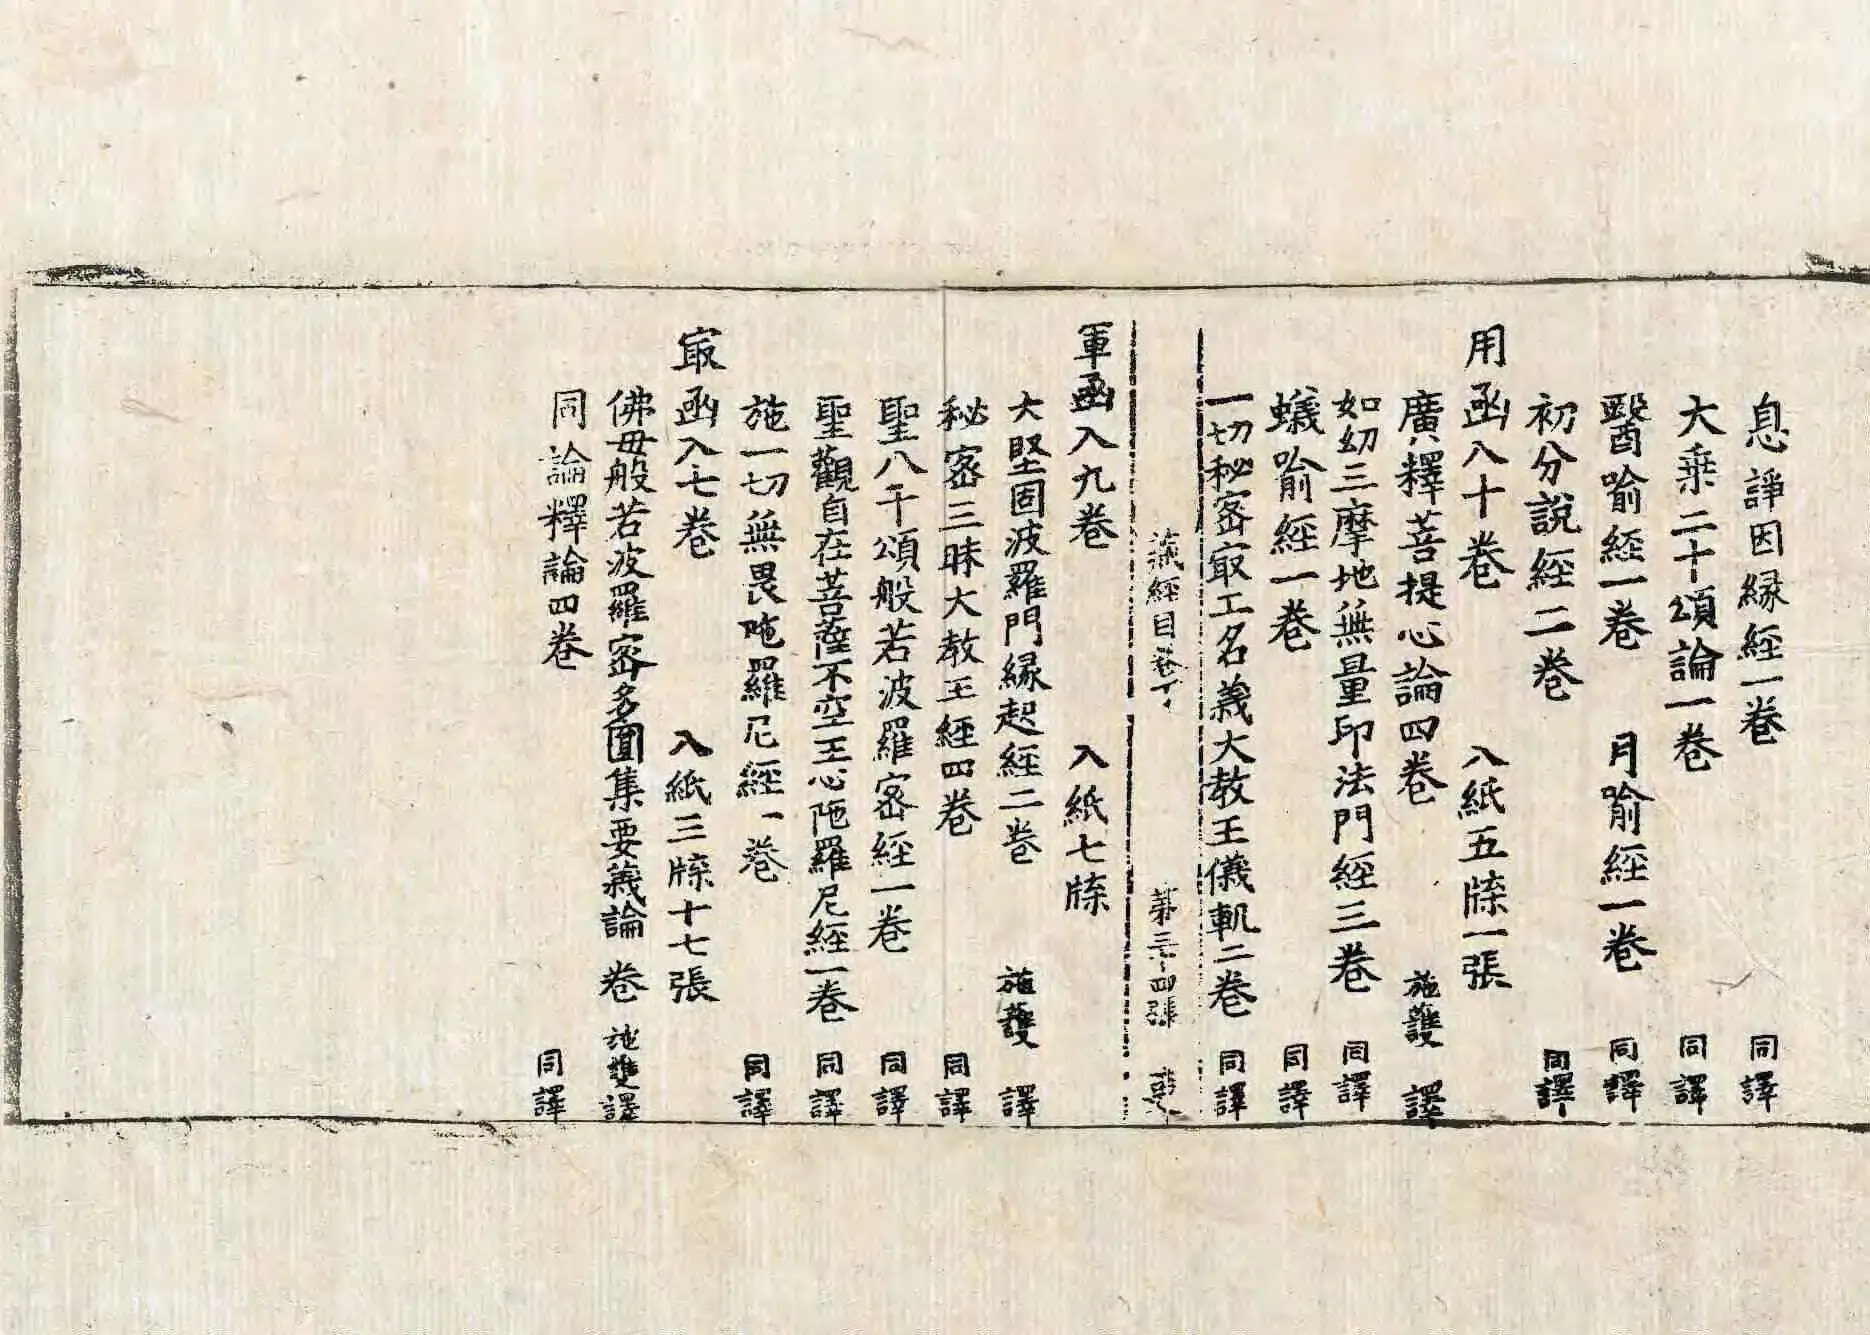 息諍因縁經一卷 同譯
大乗二十頌論一卷 同譯
醫喻經一卷 月喻經一卷 同譯
初分說經二卷 同譯
用函入十卷 入紙五牒一張
廣釋菩提心論四卷 施護 譯
如幻三摩地無量印法門經三卷 同譯
蟻喻經一卷 同譯
一切秘密㝡工名義大教王儀軌二卷 同譯
經目卷下 第三十四張
軍函入九卷 入紙七牒
大堅固波羅門縁起經二卷 施護 譯
秘密三昧大教王經四卷 同譯
聖八千頌般若波羅密經一卷 同譯
聖觀自在菩薩不空王心陁羅尼經一卷 同譯
施一切無畏陁羅尼經一卷 同譯
㝡函入七卷 入紙三牒十七張
佛毋般若波羅密多圎集要義論 卷 施護譯
同論釋論四卷 同譯